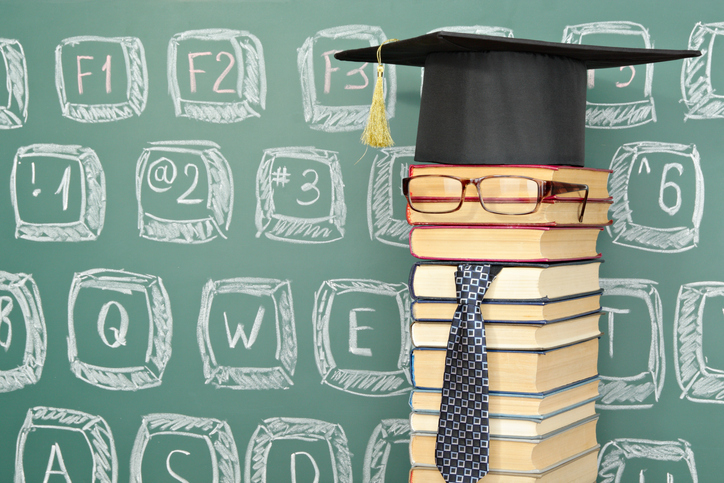 F1 F2 F3 5
! 1 @ 2 # 3 ^ 6
Q W E T
A S D